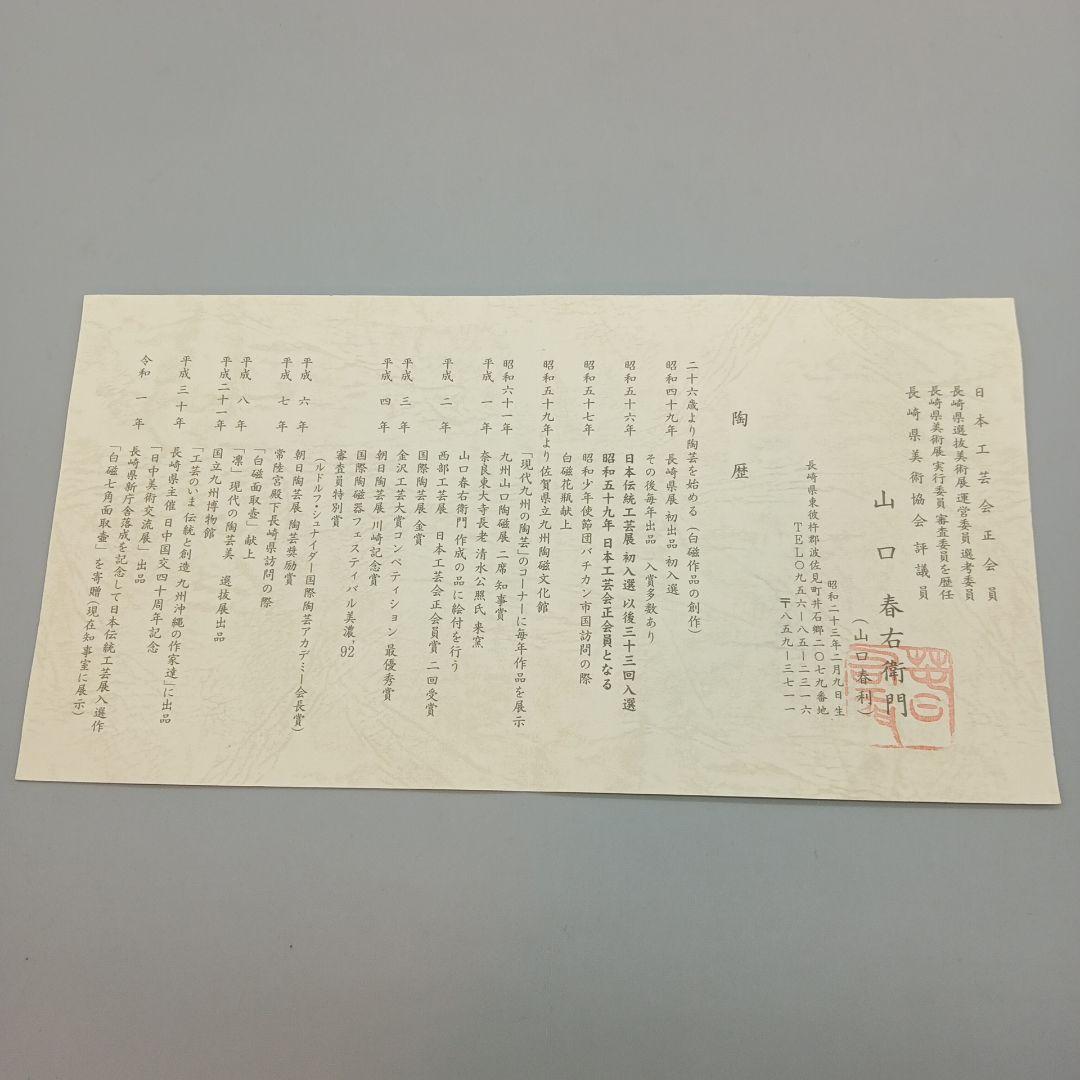 日本工芸会正会員
長崎県選抜美術展 運営委員 選考委員
長崎県美術展 実行委員 審査委員を歴任
長崎県美術協会評議員
山口春右衛門
(山口春利)
昭和二十三年二月九日生
長崎県東彼杵郡波佐見町井石郷二〇七九番地
TEL〇九五六ー八五ー二三一六
〒八五九ー三七一一
陶歴
二十六歳より陶芸を始める(白磁作品の創作)
昭和四十九年 長崎県展 初出品 初入選
その後毎年出品 入賞多数あり
昭和五十六年 日本伝統工芸展 初入選 以後三十三回入選
昭和五十九年 日本工芸会正会員となる
昭和五十七年 昭和少年使節団バチカン市国訪問の際
白磁花瓶献上
昭和五十九年より 佐賀県立九州陶磁文化館
「現代九州の陶芸」のコーナーに毎年作品を展示
昭和六十一年 九州山口陶磁展 二席 知事賞
平成一年 奈良東大寺長老 清水公照氏 来窯
山口春右衛門 作成の品に絵付を行う
平成二年 西部工芸展 日本工芸会正会員賞 二回受賞
国際陶芸展 金賞
平成三年 金沢工芸大賞コンペティション 最優秀賞
平成四年 朝日陶芸展 川崎記念賞
国際陶磁器フェスティバル美濃'92
審査員特別賞
(ルドルフ・シュナイダー国際陶芸アカデミー会長賞)
平成六年 朝日陶芸展 陶芸奨励賞
平成七年 常陸宮殿下長崎県訪問の際
「白磁面取壷」献上
平成八年 「凛」現代の陶芸美 選抜展出品
平成二十一年 国立九州博物館
「工芸のいま 伝統と創造 九州沖縄の作家達」に出品
平成三十年 長崎県主催 日中国交四十周年記念
「日中美術交流展」出品
令和一年 長崎県新庁舎落成を記念して日本伝統工芸展入選作
「白磁七角面取壷」を寄贈(現在知事室に展示)